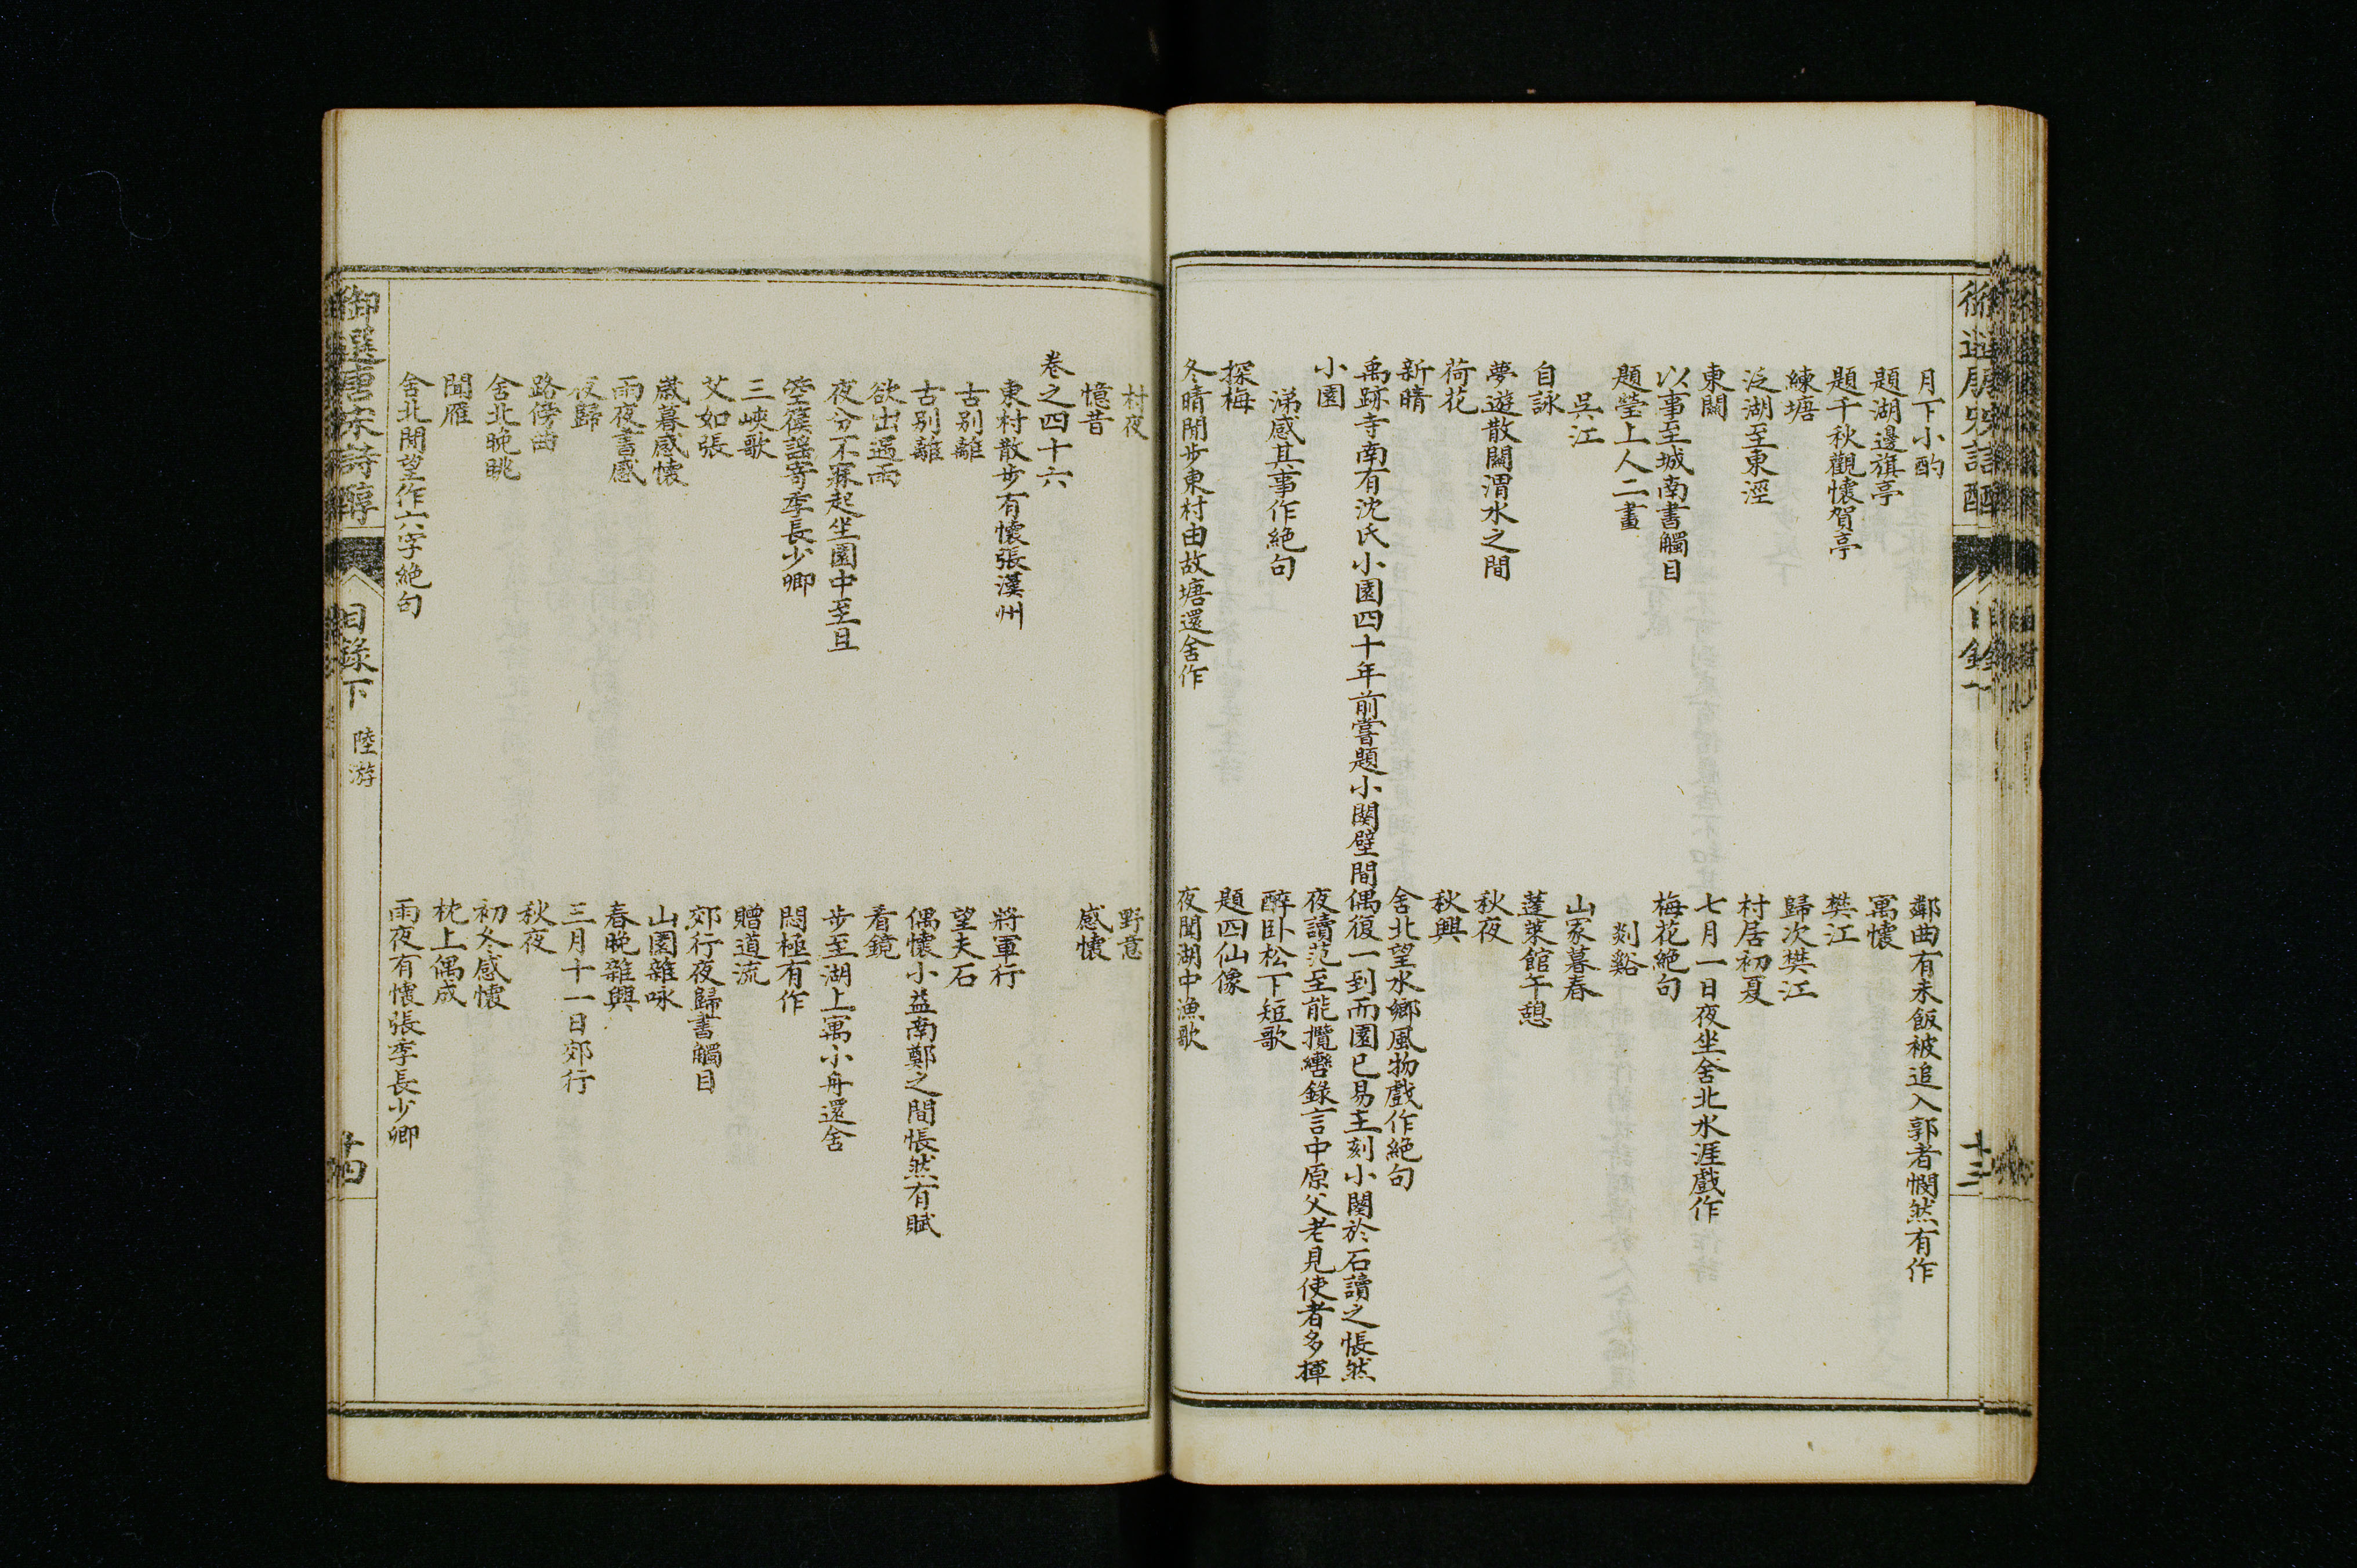 月下小酌
鄰曲有未飯被追入郭者憫然有作
題湖邊旗亭
寓懷
題千秋觀懷賀亭
樊江
練塘
歸次樊江
泛湖至東涇
村居初夏
東關
七月一日夜坐舍北水涯戲作
以事至城南書觸目
梅花絕句
題瑩上人二畫
剡谿
吳江
山家暮春
自詠
蓬萊館午憩
夢遊散關渭水之間
秋夜
荷花
秋興
新晴
舍北望水鄉風物戲作絕句
禹跡寺南有沈氏小園四十年前嘗題小闋壁間偶復一到而園已易主刻小闋於石讀之悵然
小園
夜讀范至能攬轡錄言中原父老見使者多揮
涕感其事作絕句
醉臥松下短歌
探梅
題四仙像
冬晴閒步東村由故塘還舍作
夜聞湖中漁歌
村夜
野意
憶昔
感懷
卷之四十六
東村散步有懷張漢州
將軍行
古別離
望夫石
古別離
偶懷小益南鄭之間悵然有賦
欲出遇雨
看鏡
夜分不寐起坐園中至旦
步至湖上寓小舟還舍
箜篌謠寄季長少卿
悶極有作
三峽歌
贈道流
艾如張
郊行夜歸書觸目
歲暮感懷
山園雜咏
雨夜書感
春晚雜興
夜歸
三月十一日郊行
路傍曲
秋夜
舍北晚眺
初冬感懷
聞雁
枕上偶成
舍北閒望作六字絕句
雨夜有懷張季長少卿
御選唐宋詩醇
目錄下
陸游
十四
十三